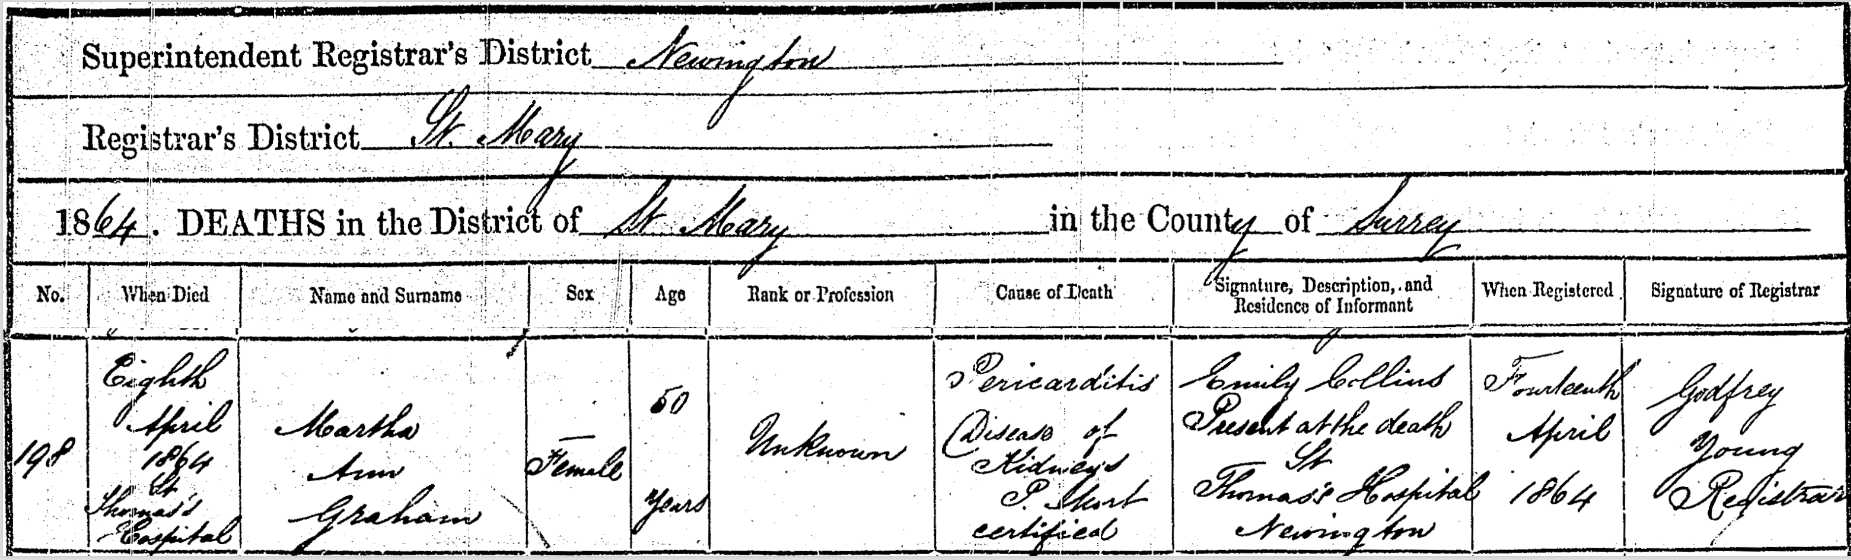 Superintendent Registrar's District Newington
Registrar's District St. Mary
1864. DEATHS in the District of St Mary in the County of Surrey
No.
When Died
Name and Surname
Sex
Age
Rank or Profession
Cause of Death
Signature, Description, and
Residence of Informant
When Registered
Signature of Registrar
198
Eighth
April
1864
St
Thomas's
Hospital
Martha
Ann
Graham
Female
50
Years
Unknown
Pericarditis
Disease of
Kidneys
P. Mort
certified
Emily Collins
Present at the death
St
Thomas's Hospital
Newington
Fourteenth
April
1864
Godfrey
Young
Registrar